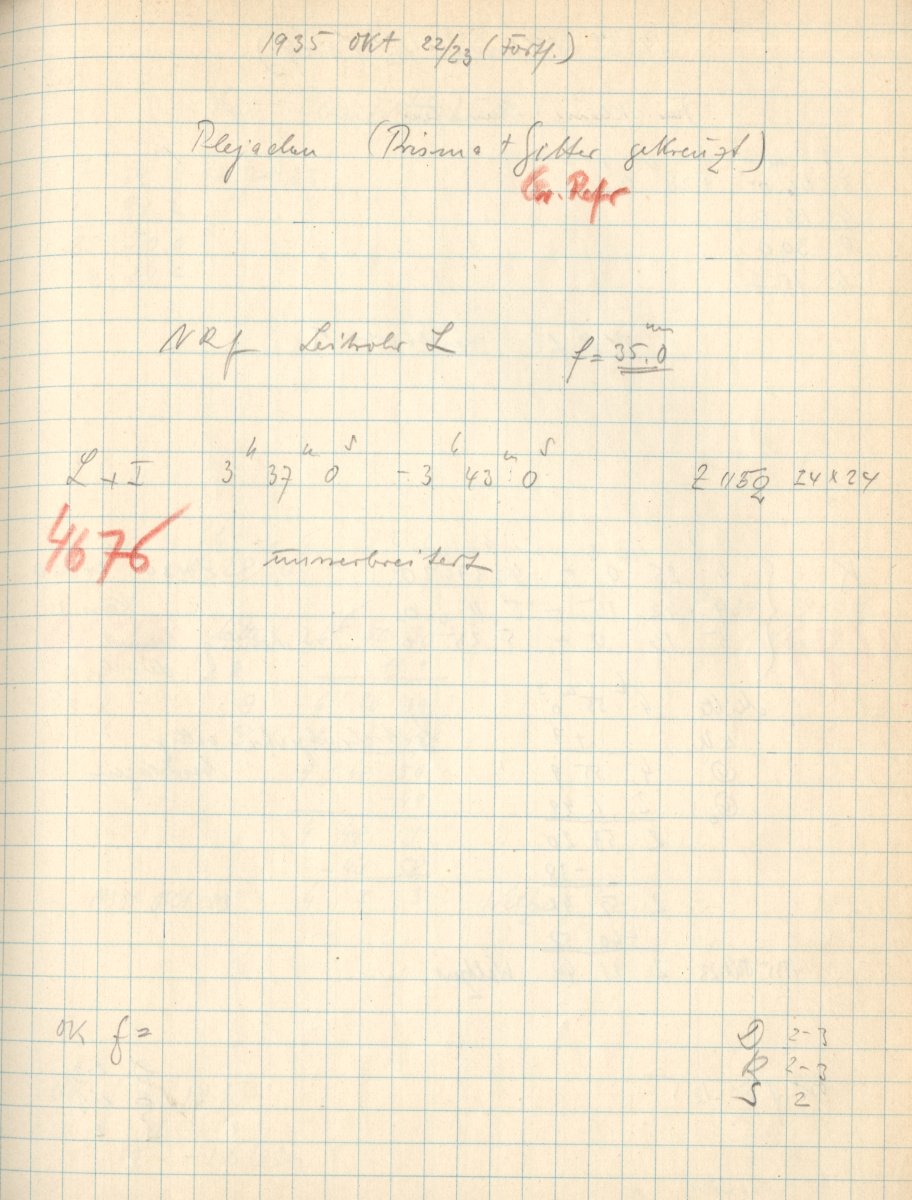 1935 Okt 22/23 (Forts.)
Plejaden (Prisma + Gitter gekreuzt)
Gr. Refr
NRf Leitrohr L f = 35.0 mm
L + I 3h 37m 0s - 3h 43m 0s Z 1159 24 x 24
4676 unverbreitert
OK f =
D 2-3
R 2-3
S 2